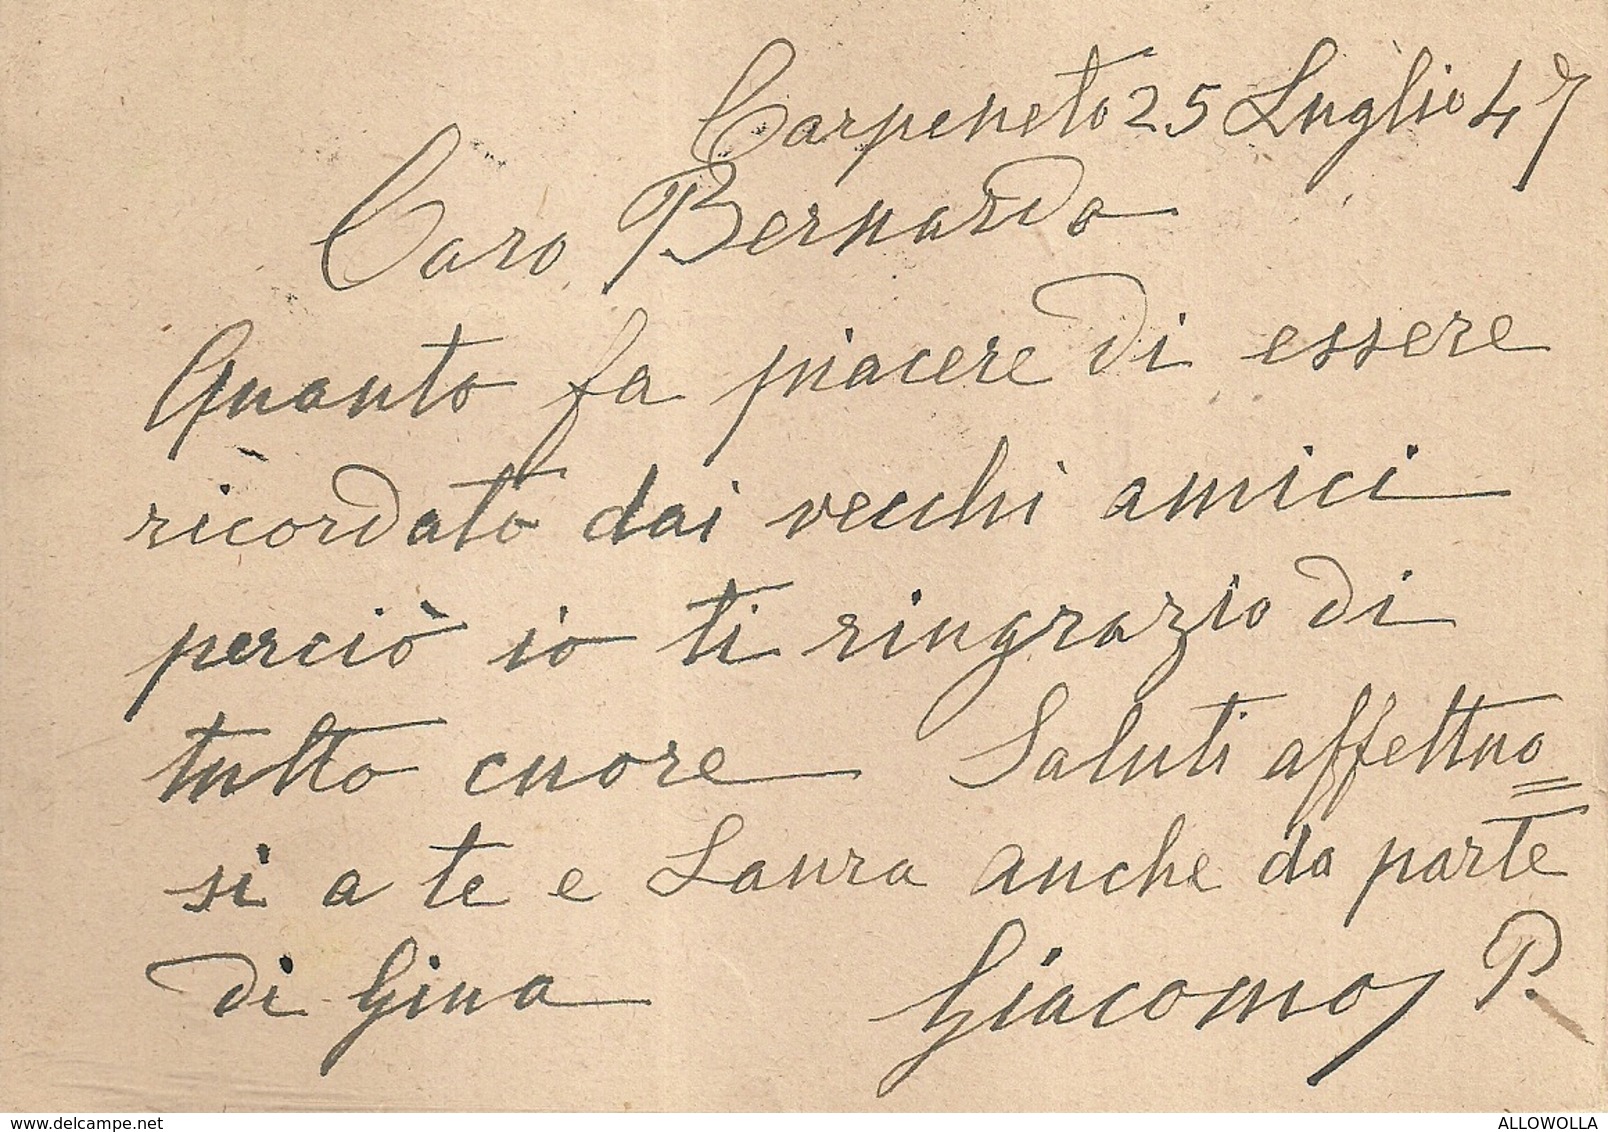 Carpeneto 25 Luglio 47
Caro Bernardo
Quanto fa piacere di essere
ricordato dai vecchi amici
perciò io ti ringrazio di
tutto cuore Saluti affettuo=
si a te e Laura anche da parte
di Gina Giacomo P.
delcampe.net
ALLOWOLLA